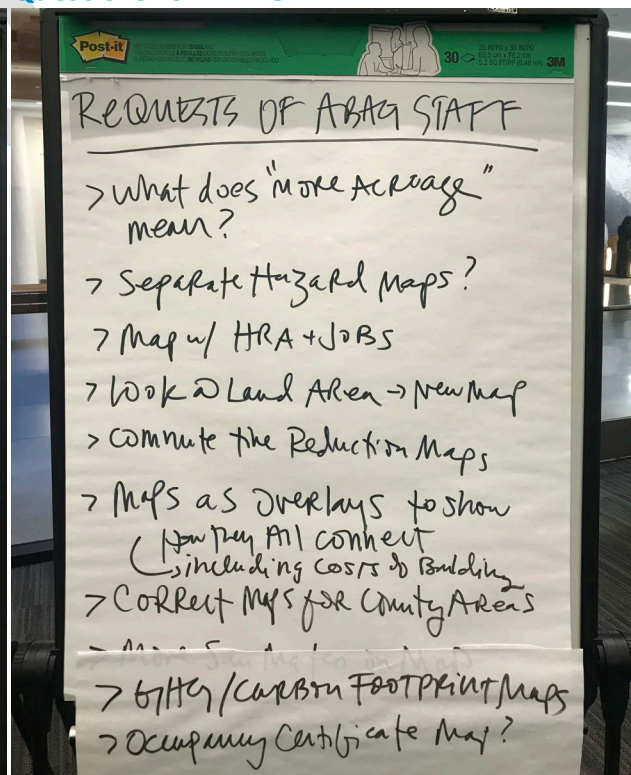 Post-it
30
25 IN/PO x 30 IN/PO
63,5 cm x 76,2 cm
3M
REQUESTS OF ABAG STAFF
> What does "MORE ACREAGE"
mean?
> Separate Hazard Maps?
> Map w/ HRA + JOBS
> Look @ Land Area → New Map
> Commute time Reduction Maps
> Maps as overlays to show
How they All connect
including costs of Building
> Correct Maps for County Areas
> More San Mateo on Map
> GHG/CARBON FOOTPRINT Maps
> Occupancy Certificate Map?